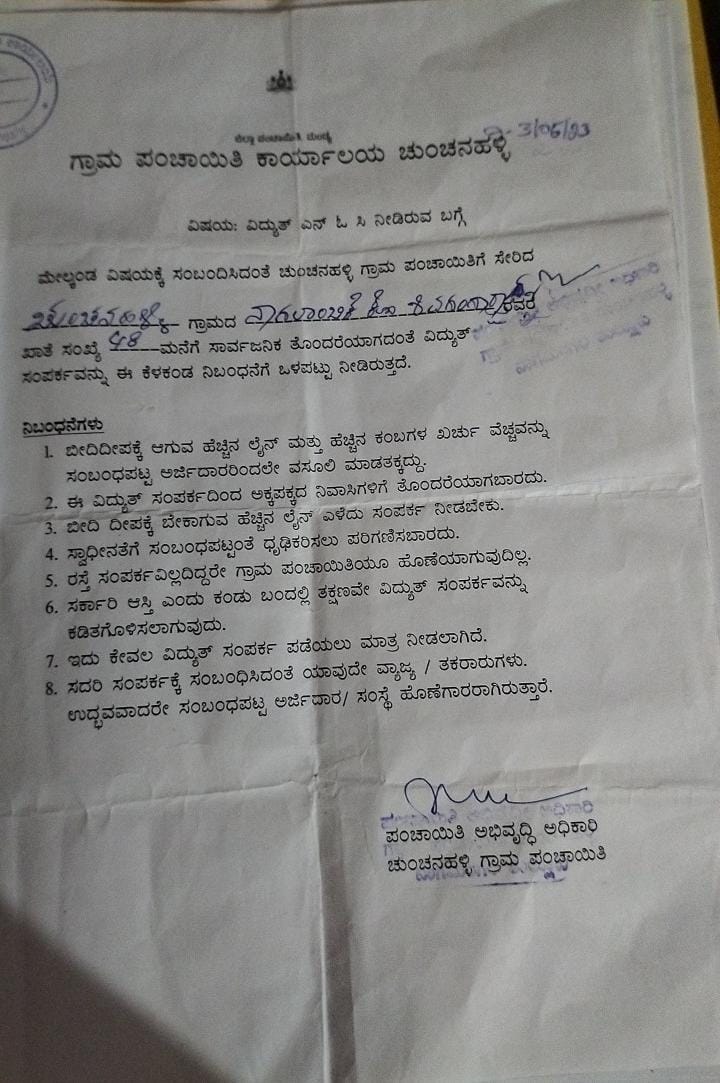 ಜಿಲ್ಲಾ ಪಂಚಾಯಿತಿ ಮಂಡ್ಯ
3/06/23
ಗ್ರಾಮ ಪಂಚಾಯಿತಿ ಕಾರ್ಯಾಲಯ ಚುಂಚನಹಳ್ಳಿ
ವಿಷಯ: ವಿದ್ಯುತ್ ಎನ್ ಓ ಸಿ ನೀಡಿರುವ ಬಗ್ಗೆ
ಮೇಲ್ಕಂಡ ವಿಷಯಕ್ಕೆ ಸಂಬಂದಿಸಿದಂತೆ ಚುಂಚನಹಳ್ಳಿ ಗ್ರಾಮ ಪಂಚಾಯಿತಿಗೆ ಸೇರಿದ
ಗ್ರಾಮದ ನಾಗಲಾಂಬಿಕೆ ಕೋಂ ರವರ
ಖಾತೆ ಸಂಖ್ಯೆ ಮನೆಗೆ ಸಾರ್ವಜನಿಕ ತೊಂದರೆಯಾಗದಂತೆ ವಿದ್ಯುತ್
ಸಂಪರ್ಕವನ್ನು ಈ ಕೆಳಕಂಡ ನಿಬಂಧನೆಗೆ ಒಳಪಟ್ಟು ನೀಡಿರುತ್ತದೆ.
ನಿಬಂಧನೆಗಳು
1. ಬೀದಿದೀಪಕ್ಕೆ ಆಗುವ ಹೆಚ್ಚಿನ ಲೈನ್ ಮತ್ತು ಹೆಚ್ಚಿನ ಕಂಬಗಳ ಖರ್ಚು ವೆಚ್ಚವನ್ನು
ಸಂಬಂಧಪಟ್ಟ ಅರ್ಜಿದಾರರಿಂದಲೇ ವಸೂಲಿ ಮಾಡತಕ್ಕದ್ದು.
2. ಈ ವಿದ್ಯುತ್ ಸಂಪರ್ಕದಿಂದ ಅಕ್ಕಪಕ್ಕದ ನಿವಾಸಿಗಳಿಗೆ ತೊಂದರೆಯಾಗಬಾರದು.
3. ಬೀದಿ ದೀಪಕ್ಕೆ ಬೇಕಾಗುವ ಹೆಚ್ಚಿನ ಲೈನ್ ಎಳೆದು ಸಂಪರ್ಕ ನೀಡಬೇಕು.
4. ಸ್ವಾಧೀನತೆಗೆ ಸಂಬಂಧಪಟ್ಟಂತೆ ಧೃಢಿಕರಿಸಲು ಪರಿಗಣಿಸಬಾರದು.
5. ರಸ್ತೆ ಸಂಪರ್ಕವಿಲ್ಲದಿದ್ದರೇ ಗ್ರಾಮ ಪಂಚಾಯಿತಿಯೂ ಹೊಣೆಯಾಗುವುದಿಲ್ಲ.
6. ಸರ್ಕಾರಿ ಆಸ್ತಿ ಎಂದು ಕಂಡು ಬಂದಲ್ಲಿ ತಕ್ಷಣವೇ ವಿದ್ಯುತ್ ಸಂಪರ್ಕವನ್ನು
ಕಡಿತಗೊಳಿಸಲಾಗುವುದು.
7. ಇದು ಕೇವಲ ವಿದ್ಯುತ್ ಸಂಪರ್ಕ ಪಡೆಯಲು ಮಾತ್ರ ನೀಡಲಾಗಿದೆ.
8. ಸದರಿ ಸಂಪರ್ಕಕ್ಕೆ ಸಂಬಂಧಿಸಿದಂತೆ ಯಾವುದೇ ವ್ಯಾಜ್ಯ / ತಕರಾರುಗಳು.
ಉದ್ಭವವಾದರೇ ಸಂಬಂಧಪಟ್ಟ ಅರ್ಜಿದಾರ/ ಸಂಸ್ಥೆ ಹೊಣೆಗಾರರಾಗಿರುತ್ತಾರೆ.
ಪಂಚಾಯಿತಿ ಅಭಿವೃದ್ಧಿ ಅಧಿಕಾರಿ
ಚುಂಚನಹಳ್ಳಿ ಗ್ರಾಮ ಪಂಚಾಯಿತಿ